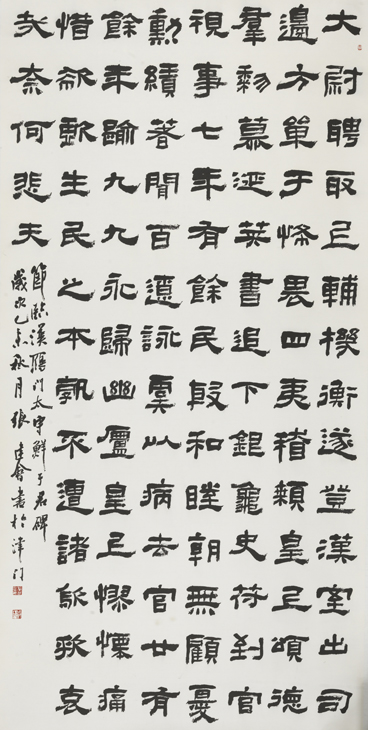 大尉聘取上輔機衡遂登漢室出司
邊方單于怖畏四夷稽顙皇上頌德
羣剹慕涎英書追下銀龜史符到官
視事七年有餘民殷和睦朝無顧憂
勳績著聞百遼詠虞以病去官廿有
餘年踰九九永歸幽廬皇上憀懷痛
惜歎生民之本孰不遭諸歔哀
哉奈何悲夫
節臨漢雁門太守鮮于君碑
歲次己亥秋月張建會書於津門